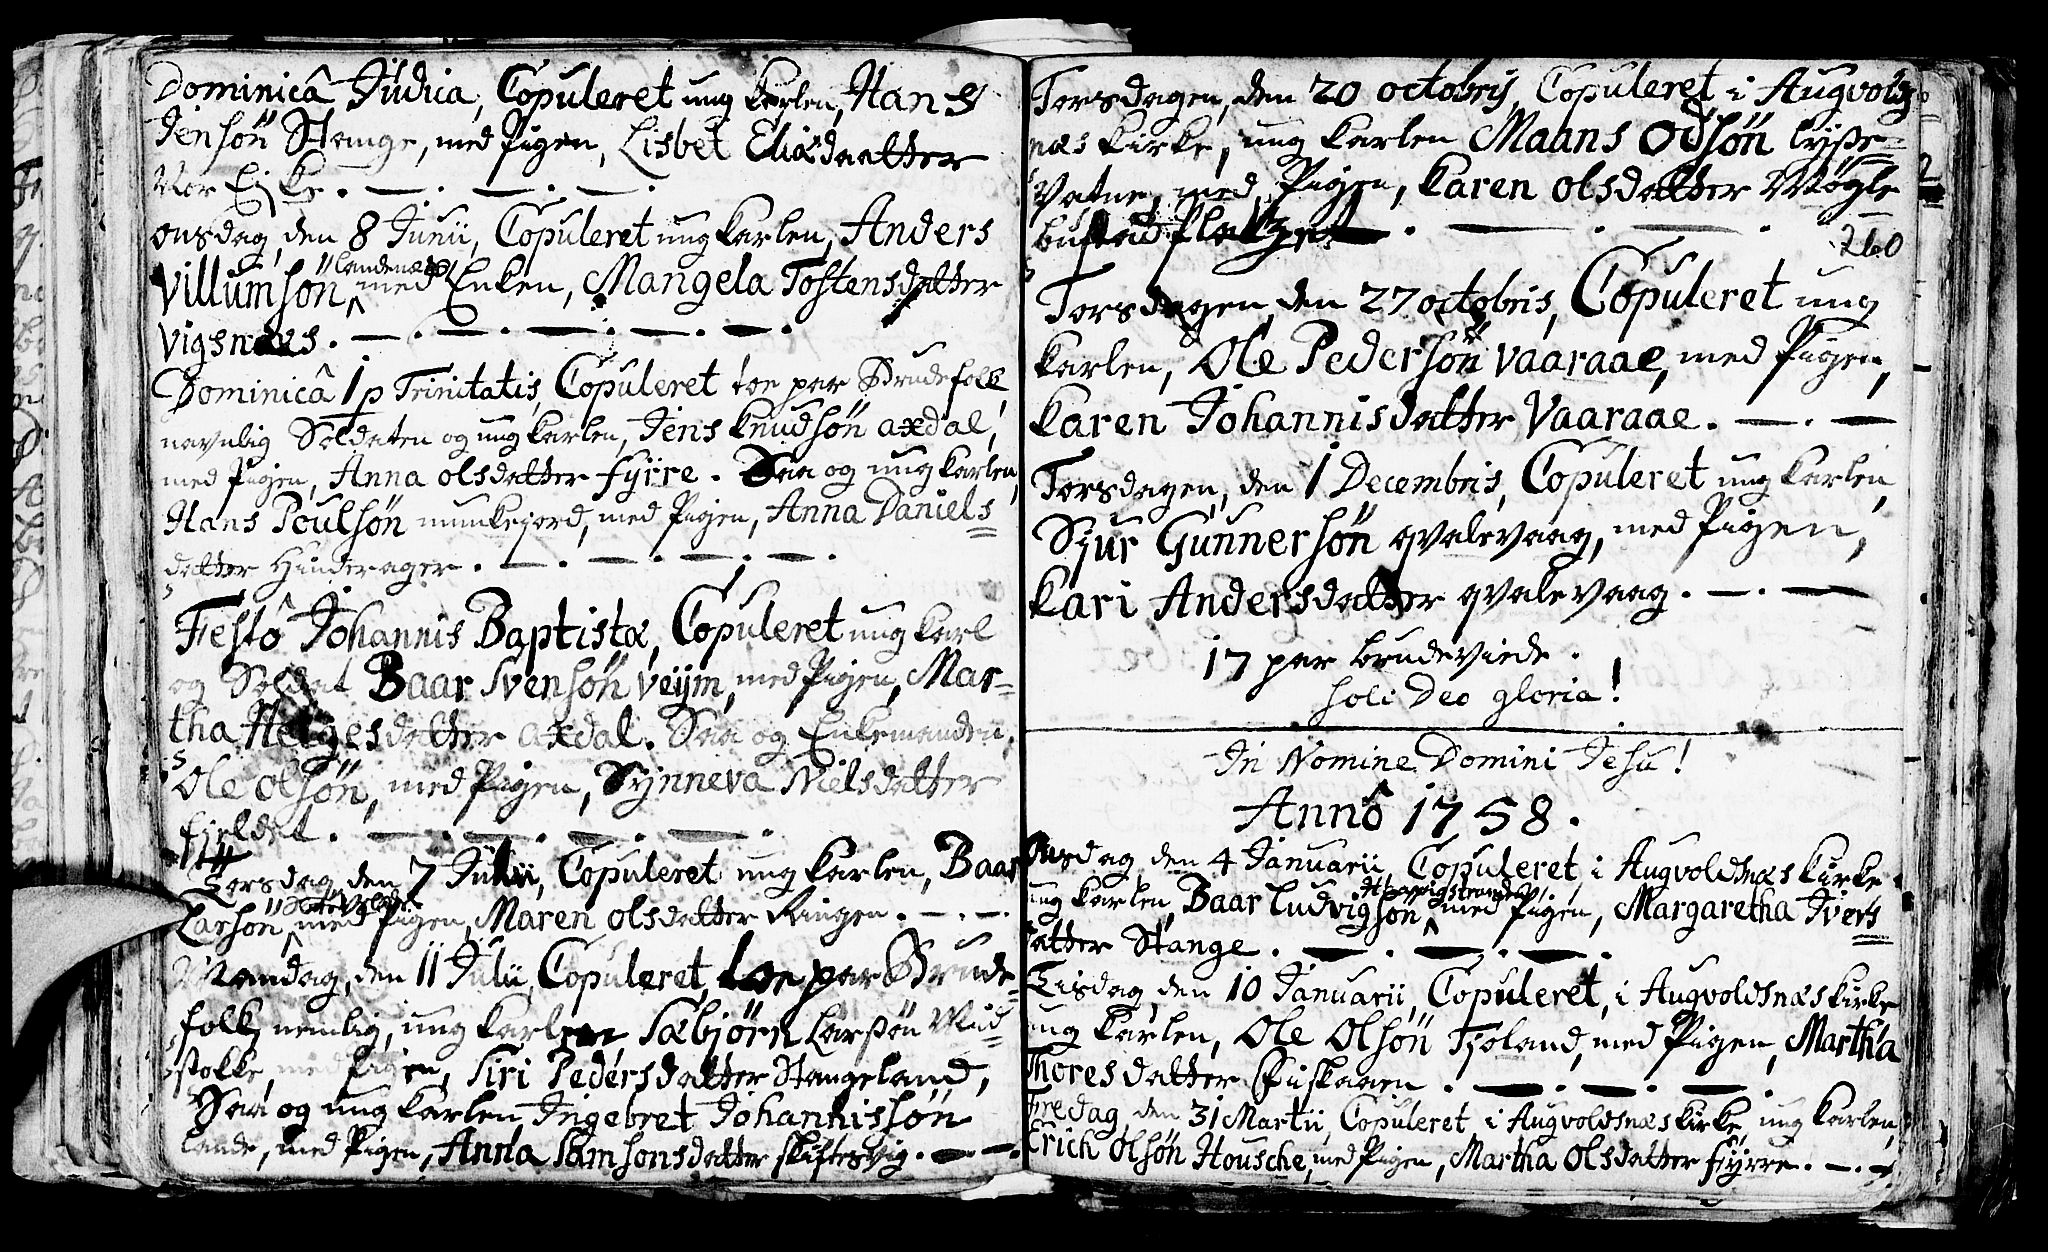 Dominicâ Judica, Copuleret ung karlen, Hans
Jensøn Stange, med Pigen, Lisbet Eliædaatter
Vor Eike. —. —. —.
onsdag, den 8 Junii, Copuleret ung karlen, Anders
Villumsøn, landenæs med Enken, Mangela Tostensdatter
Vigsnæs. —. —. —. —. —.
Dominicâ 1 p Trinitatis, Copuleret toe par Brudefolk,
navnlig Soldaten og ung karlen, Jens Knudsøn axdal,
med Pigen, Anna olsdatter fyrre. Saa og ung karlen,
Hans Poulsøn munkejord, med Pigen, Anna Daniels=
datter Hinderager. —. —. —. —.
Festô Johannis Baptistæ, Copuleret ung karl
og Soldat Baar Svensøn Veijm, med Pigen, Mar=
tha Helgesdatter axdal. Saa og Enkemanden,
Ole olsøn, med Pigen, Synneva Nielsdatter
fieldet. —. —. —. —.
Torsdag, den 7 Julii, Copuleret ung karlen, Baar
Larsøn med Pigen, Maren olsdatter Ringen. —. —.
Mandag, den 11 Julii, Copuleret, toe par Brude=
folk, nemlig, ung karlen Sæbjørn Larsøn Mid=
stokke, med Pigen, Siri Pedersdatter Stangeland,
Saa og ung karlen, Ingebret Johannissøn
lande, med Pigen, Anna Samsonsdatter skiftesvig. —. —.
Torsdagen, den 20 octobris, Copuleret i Augvolds
næs kirke, ung karlen Maans Odsøn lysse=
Vatne, med Pigen, Karen olsdatter Møgle
bustad pladzet —. —. —.
260
Torsdagen, den 27 octobris, Copuleret ung
karlen, Ole Pedersøn vaaraae, med Pigen,
Karen Johannisdatter Vaaraae. —. —
Torsdagen, den 1 Decembris, Copuleret ung karlen,
Sjur Gunnersøn qvalevaag, med Pigen,
Kari Andersdatter qvalevaag. —. —
17 par brudeviede.
soli Deo gloria!
In Nomine Domini Jesu!
Annô 1758.
Onsdag, den 4 Januarii, Copuleret, i Augvoldsnæs kirke
ung karlen, Baar Ludvigsøn, med Pigen, Margaretha Ivers
datter Stange. —. —. —. —.
Tisdag, den 10 Januarii, Copuleret, i Augvoldsnæs kirke
ung karlen, Ole Olsøn Tjoland, med Pigen, Martha
Thoresdatter Fiskaaen. —. —. —.
Fredag, den 31 Martii, Copuleret, i Augvoldsnæs kirke, ung karlen,
Erich Olsøn Housche, med Pigen, Martha Olsdatter fyrre. —. —.